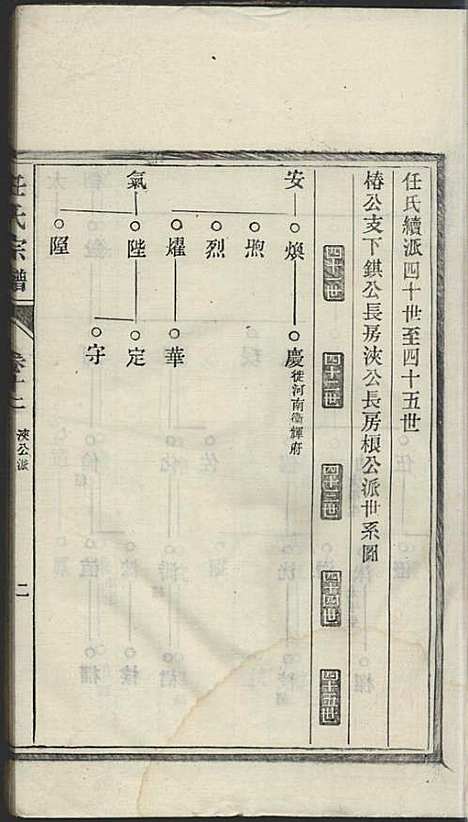 任氏續派四十世至四十五世
椿公支下錤公長房浹公長房根公派世系圖
四十一世
四十二世
四十三世
四十四世
四十五世
安
煥
慶 徙河南衞輝府
煦
烈
燿
華
氣
陛
定
守
隉
任氏宗譜
卷十二
浹公派
二